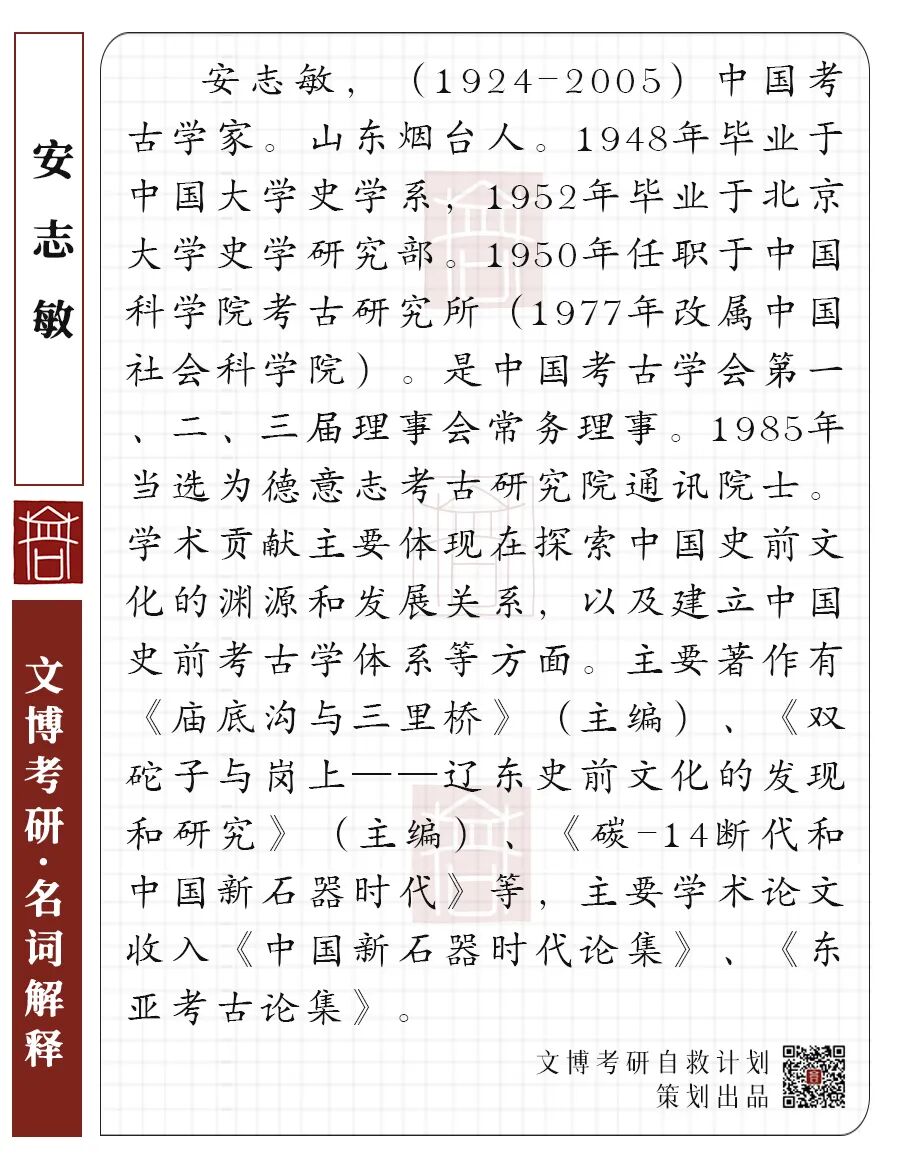 安志敏
文博考研·名词解释
安志敏，（1924-2005）中国考
古学家。山东烟台人。1948年毕业于
中国大学史学系，1952年毕业于北京
大学史学研究部。1950年任职于中国
科学院考古研究所（1977年改属中国
社会科学院）。是中国考古学会第一
、二、三届理事会常务理事。1985年
当选为德意志考古研究院通讯院士。
学术贡献主要体现在探索中国史前文
化的渊源和发展关系，以及建立中国
史前考古学体系等方面。主要著作有
《庙底沟与三里桥》（主编）、《双
砣子与岗上——辽东史前文化的发现
和研究》（主编）、《碳-14断代和
中国新石器时代》等，主要学术论文
收入《中国新石器时代论集》、《东
亚考古论集》。
文博考研自救计划
策划出品